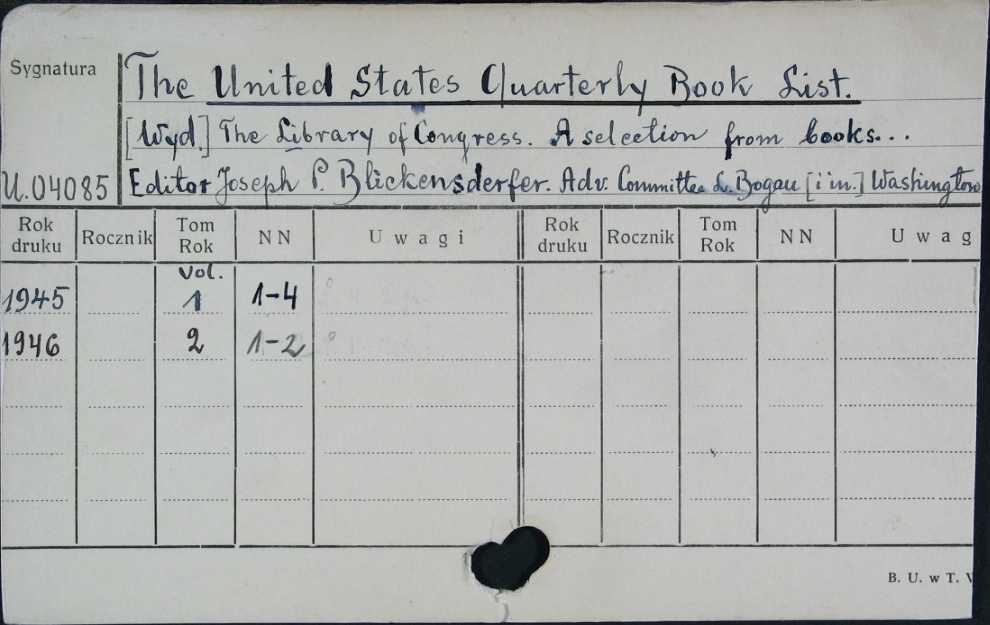 Sygnatura
The United States Quarterly Book List.
[Wyd.] The Library of Congress. A selection from books...
U.04085 Editor Joseph P. Blickensderfer. Adv. Committee L. Bogau [i in.] Washington
Rok druku Rocznik Tom Rok NN Uwagi Rok druku Rocznik Tom Rok NN Uwag
Vol.
1945 1 1-4
1946 2 1-2
B. U. w T.